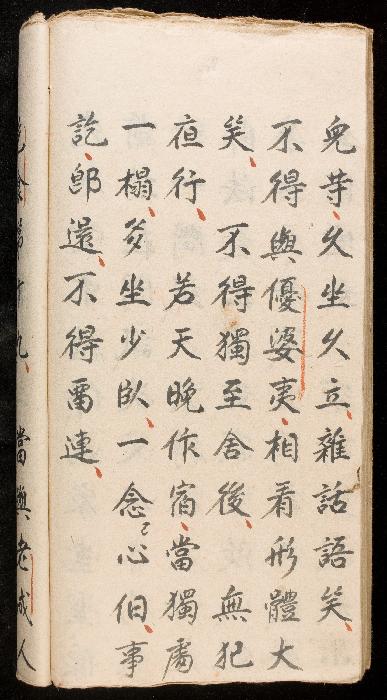 兒等、久坐久立、雜話語笑、
不得與優婆夷、相看形體大
笑、不得獨至舍後、無犯
夜行、若天晚作宿、當獨處
一榻、多坐少臥、一念〻心但事
訖、即還、不得留連、
當與老成人